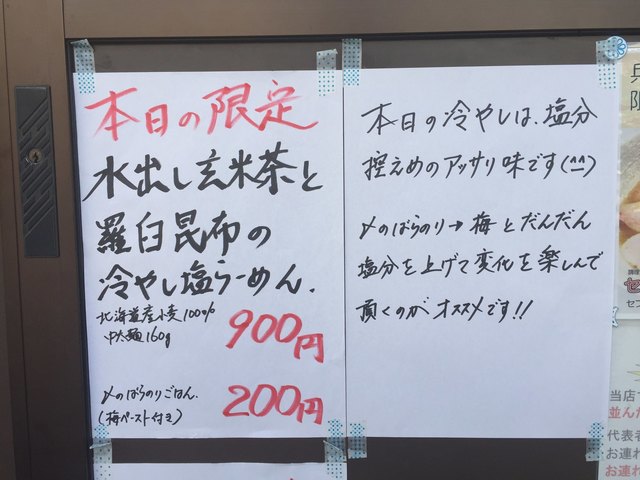 本日の限定
水出し玄米茶と
羅臼昆布の
冷やし塩らーめん.
北海道産小麦100%
中太麺160g
900円
〆のばらのりごはん.
(梅ペースト付き)
200円
本日の冷やしは、塩分
控えめのアッサリ味です(^^)
〆のばらのり→梅とだんだん
塩分を上げて変化を楽しんで
頂くのがオススメです!!
当店
並んだ
代表者
お連れ
お連れ